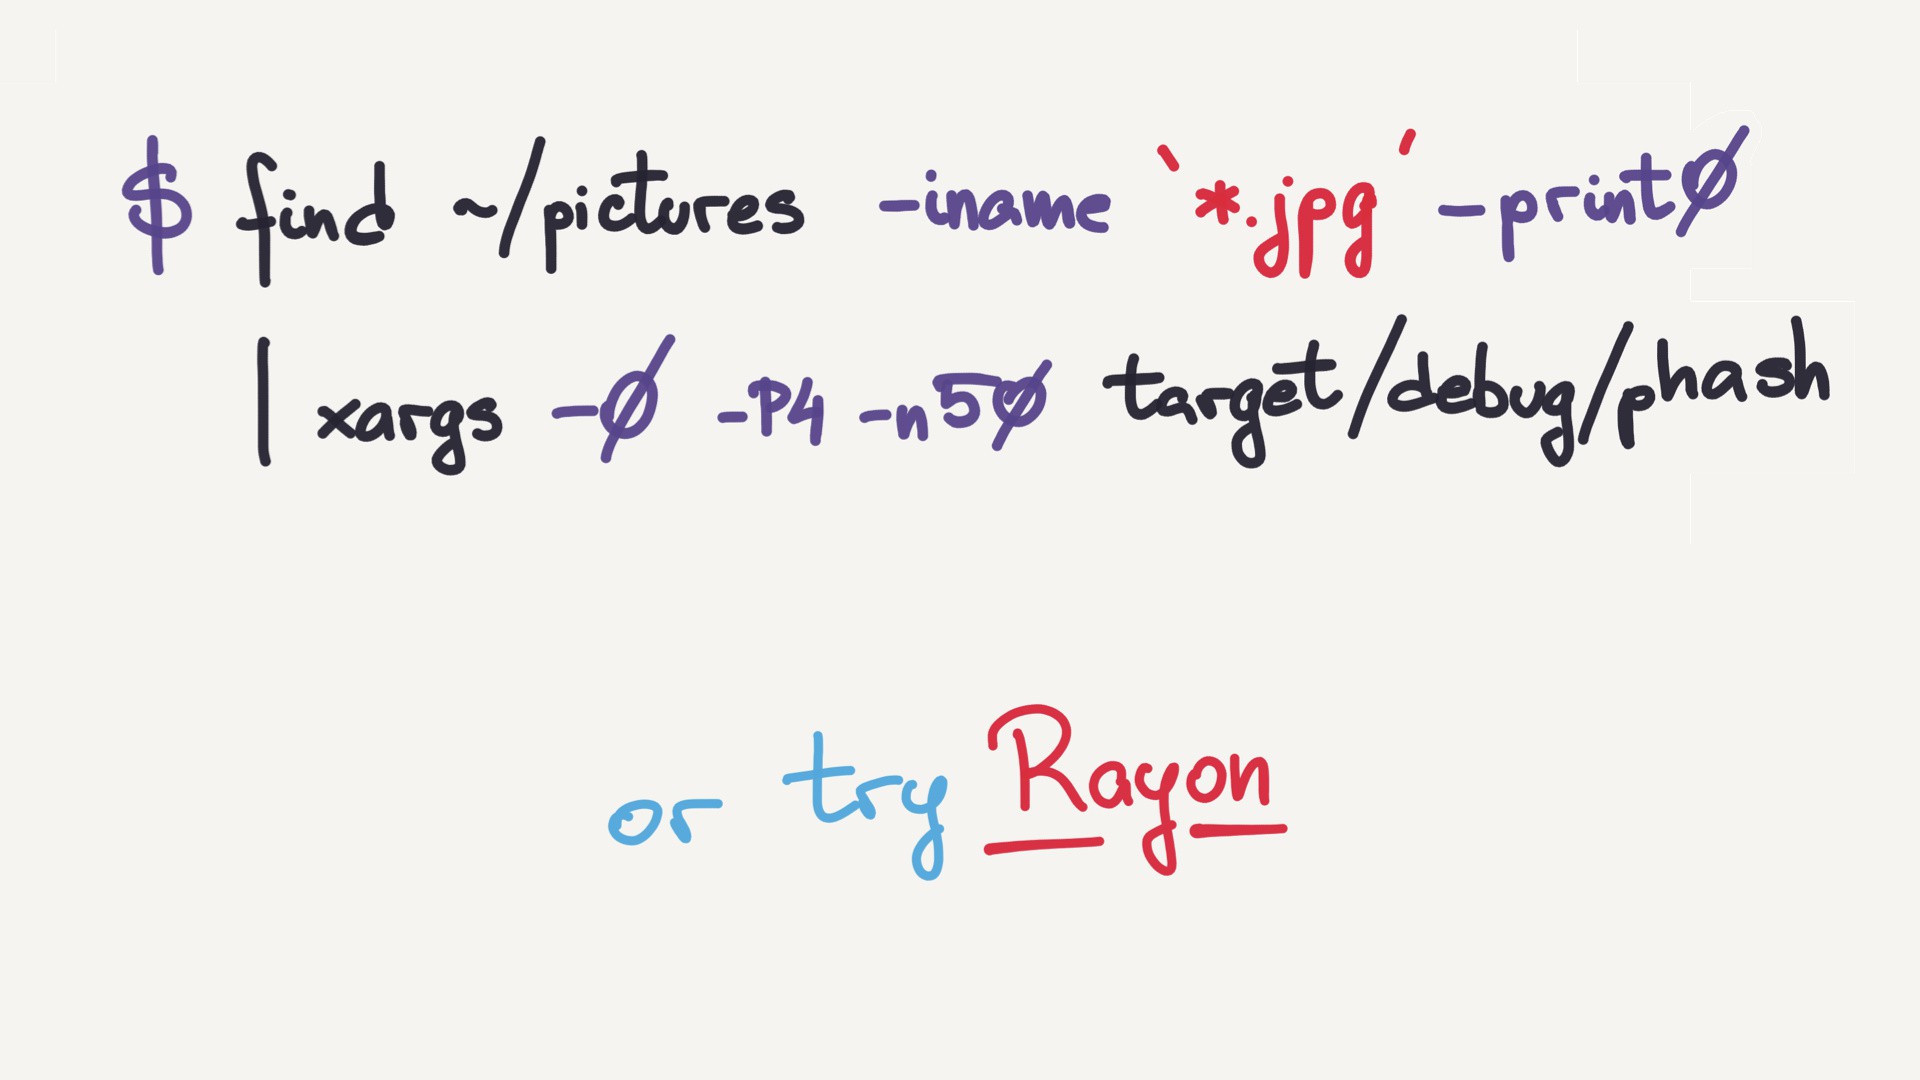 $ find ~/pictures -iname '*.jpg' -print0
| xargs -0 -P4 -n50 target/debug/phash
or try Rayon